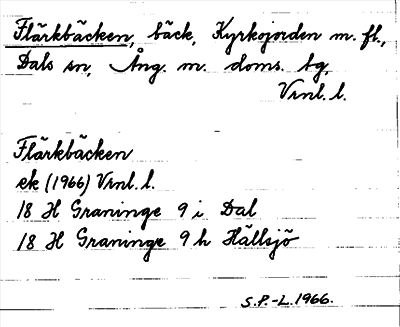 Flärkbäcken, bäck, Kyrkojorden m. fl.,
Dals sn, Ång. m. doms. tg,
Vrnl. l.
Flärkbäcken
ek (1966) Vrnl. l.
18 H Graninge 9 i Dal
18 H Graninge 9 h Hällsjö
S.P.-L. 1966.